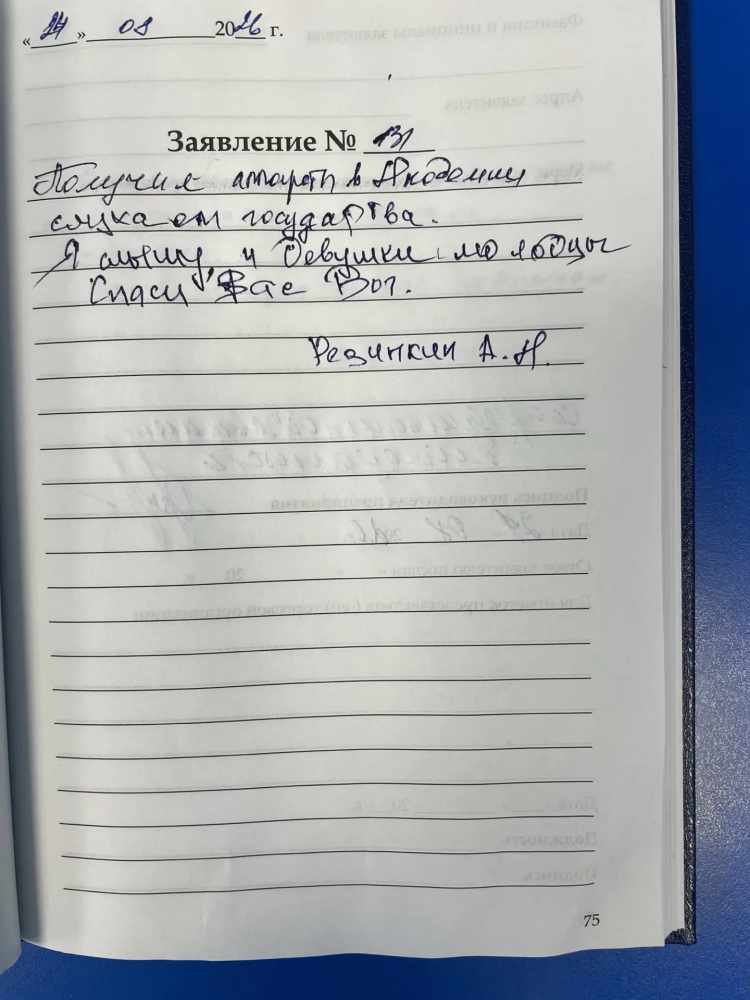 «24» 08 2026 г.
Заявление № 131
Получил аппараты в Академии
слуха от государства.
Я слышу и девушки молодцы
Спаси Вас Бог.
Резинкин А. Н.
75